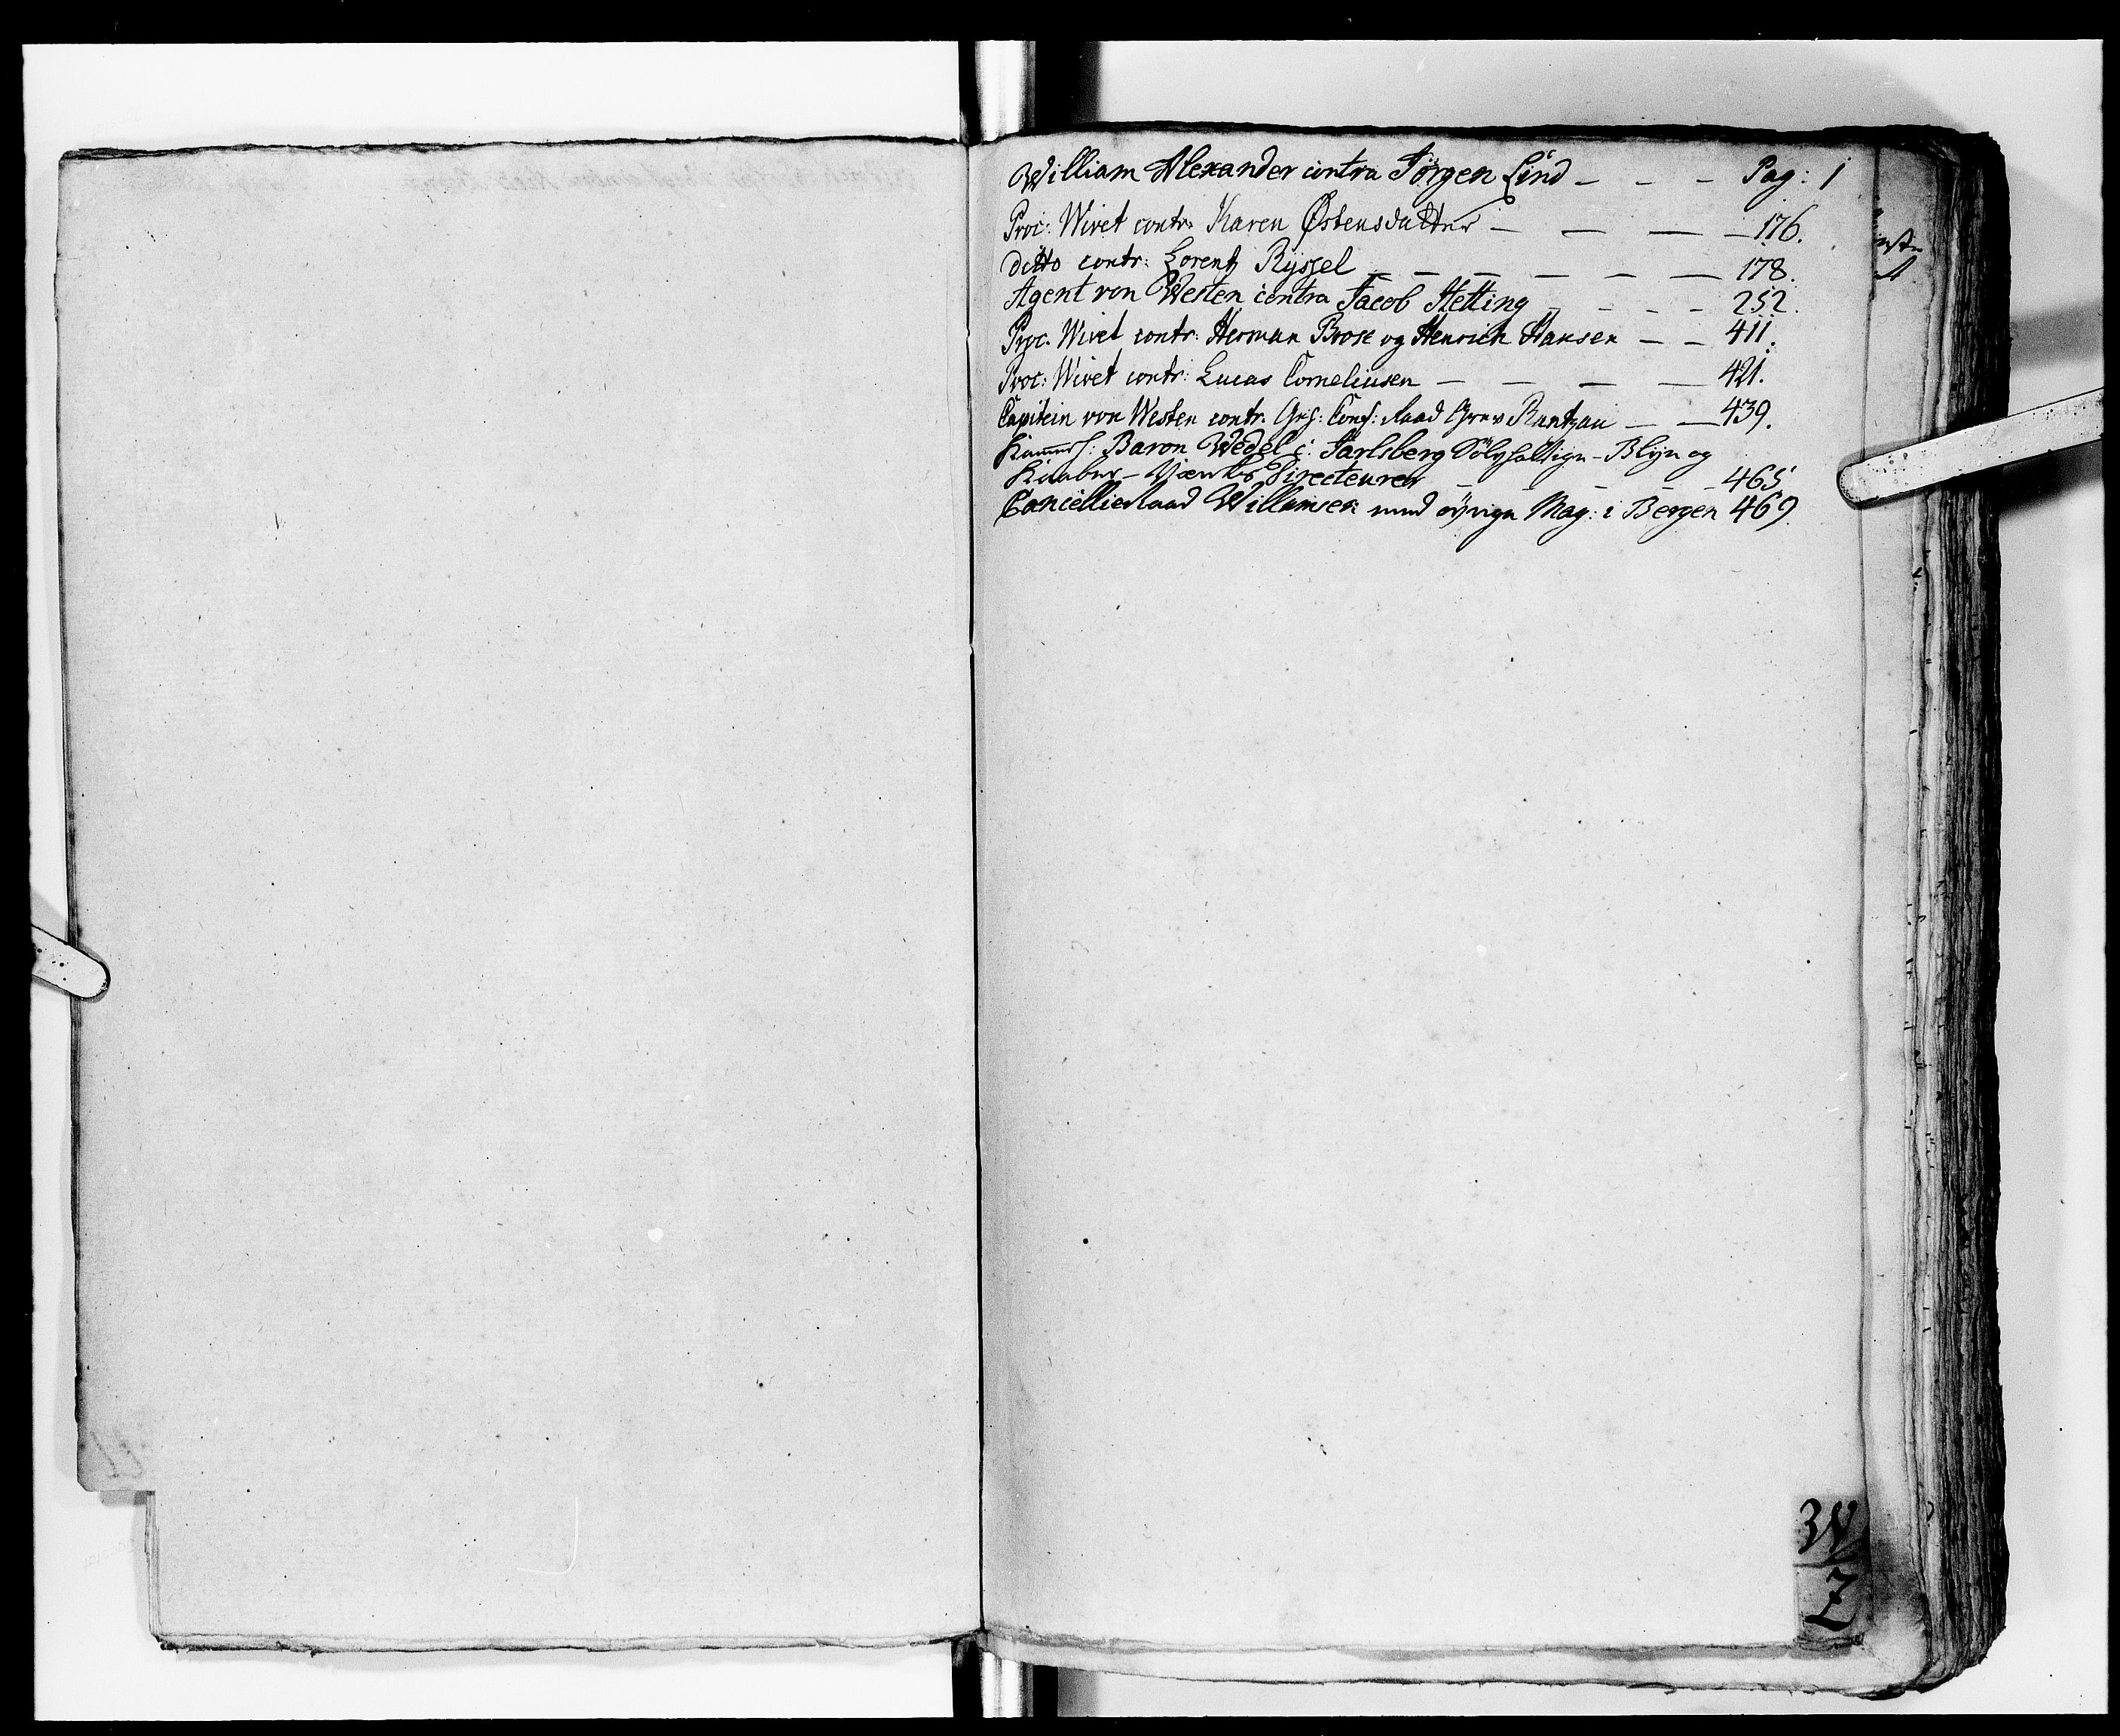 William Alexander contra Jörgen Lind - - - Pag: 1
Proc: Wivet contr: Karen Østensdatter - - - - 176.
ditto contr: Lorentz Ryssel - - - - - - 178.
Agent von Westen contra Jacob Hetting - - - - 252.
Proc. Wivet contr: Herman Brose og Henrich Hansen - - 411.
Proc: Wivet contr: Lucas Corneliusen - - - - 421.
Capitein von Westen contr. Geh: Conf: Raad Grev Rantzau - - 439.
Kammerh: Baron Wedel c: Jarlsberg Sölvholdige-Blye og
Kaaber-Værks Directeurer - - - - - 465
Cancellie Raad Willumsen med øvrige Mag: i Bergen 469.
W
Z